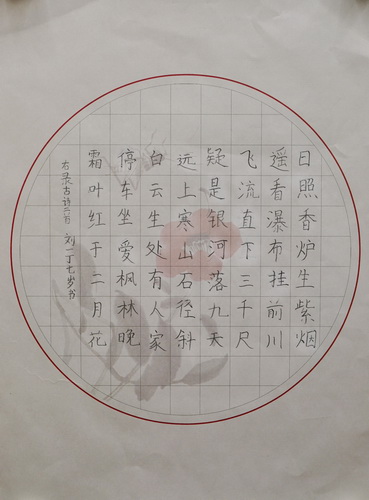 日照香炉生紫烟
遥看瀑布挂前川
飞流直下三千尺
疑是银河落九天
远上寒山石径斜
白云生处有人家
停车坐爱枫林晚
霜叶红于二月花
右录古诗二首 刘一丁七岁书